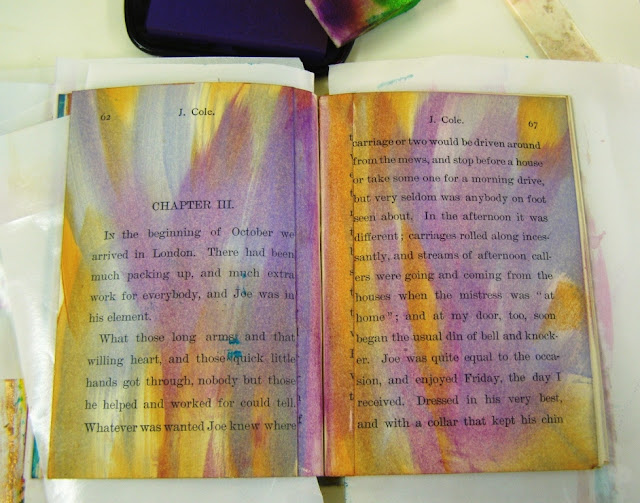 62
J. Cole.
CHAPTER III.
In the beginning of October we
arrived in London. There had been
much packing up, and much extra
work for everybody, and Joe was in
his element.
What those long arms and that
willing heart, and those quick little
hands got through, nobody but those
he helped and worked for could tell.
Whatever was wanted Joe knew where
J. Cole.
67
carriage or two would be driven around
from the mews, and stop before a house
or take some one for a morning drive,
but very seldom was anybody on foot
seen about. In the afternoon it was
different; carriages rolled along inces-
santly, and streams of afternoon call-
ers were going and coming from the
houses when the mistress was "at
home"; and at my door, too, soon
began the usual din of bell and knock-
er. Joe was quite equal to the occa-
sion, and enjoyed Friday, the day I
received. Dressed in his very best,
and with a collar that kept his chin